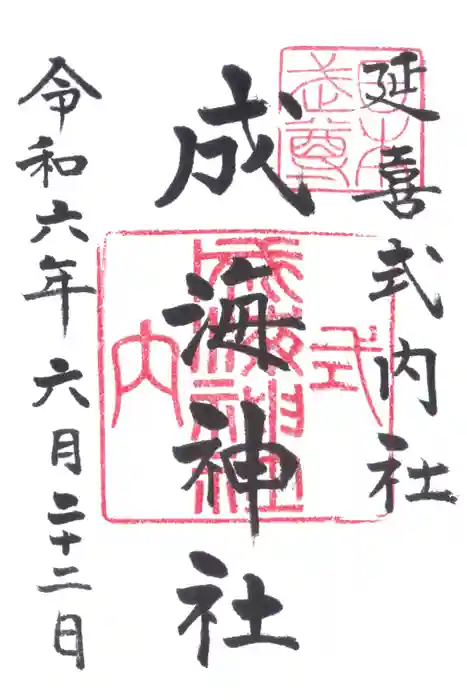 延喜式内社
日本武尊
成海神社
式内
成海神社
令和六年 六月二十二日